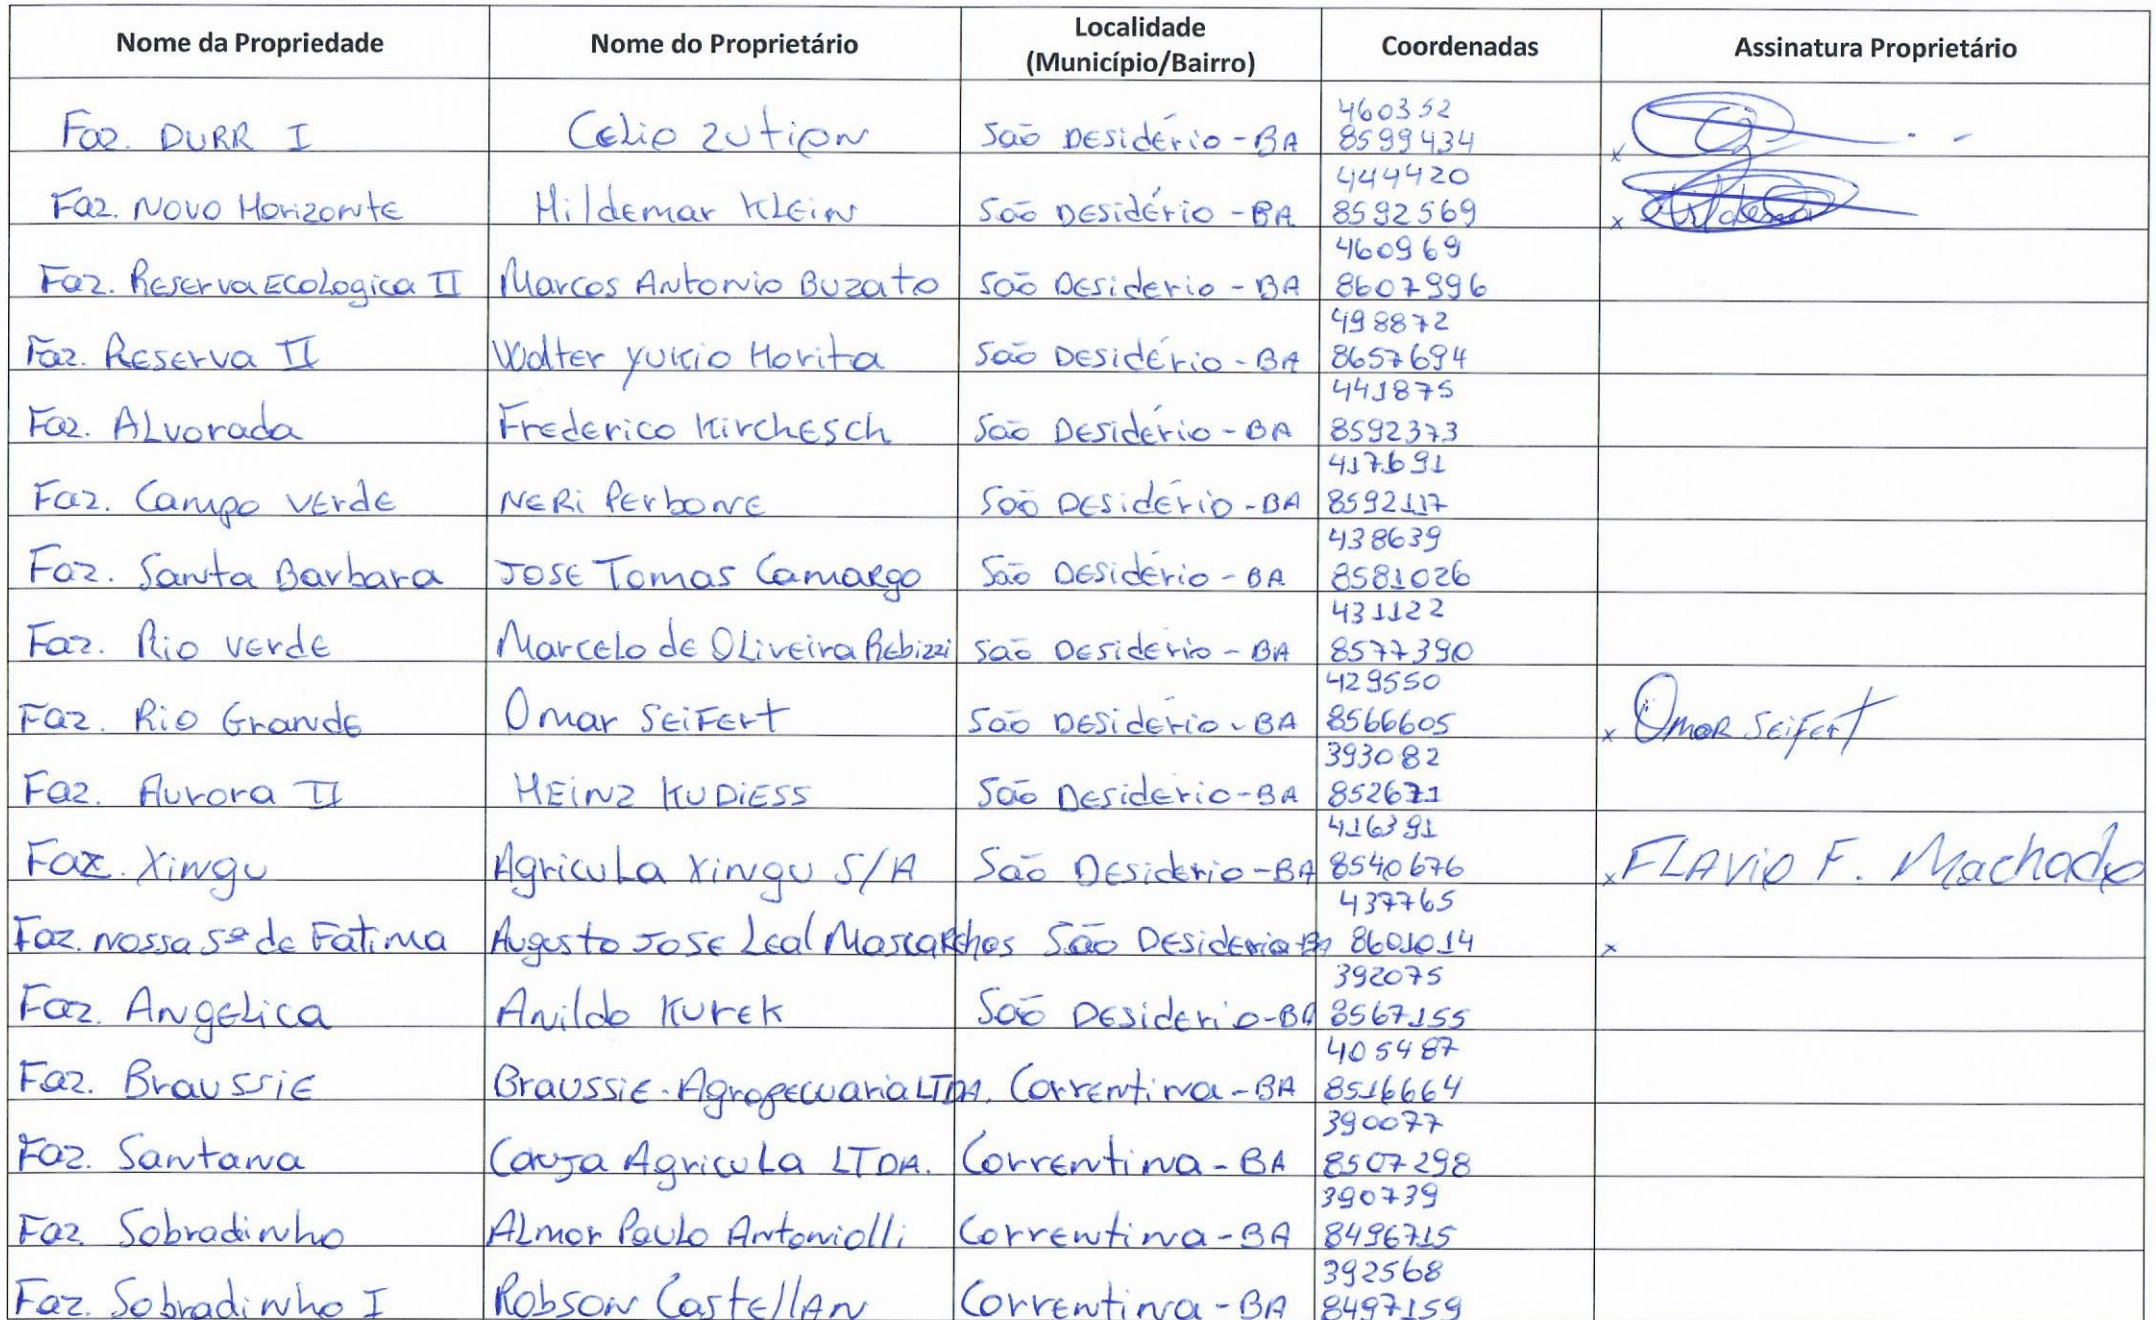 Nome da Propriedade Nome do Proprietário Localidade (Município/Bairro) Coordenadas Assinatura Proprietário
Faz. DURR I Celio Zution São Desidério - BA 460352 8599434
Faz. Novo Horizonte Hildemar Klein São Desidério - BA 444420 8592569
Faz. Reserva Ecologica II Marcos Antonio Buzato São Desiderio - BA 460969 8607996
Faz. Reserva II Walter Yukio Horita São Desidério - BA 498872 8657694
Faz. Alvorada Frederico Kirchesch São Desidério - BA 441875 8592373
Faz. Campo Verde Neri Perbone São Desidério - BA 417691 8592117
Faz. Santa Barbara Jose Tomas Camargo São Desidério - BA 438639 8581026
Faz. Rio Verde Marcelo de Oliveira Rebizzi São Desiderio - BA 431122 8577390
Faz. Rio Grande Omar Seifert São Desidério - BA 429550 8566605 x Omar Seifert
Faz. Aurora II Heinz Kudiess São Desiderio - BA 393082 852671
Faz. Xingu Agricula Xingu S/A São Desiderio - BA 416391 8540676 x Flavio F. Machado
Faz. Nossa Sª de Fatima Augusto Jose Leal São Desiderio - BA 437765 8601014 x
Faz. Angelica Anildo Kurek São Desiderio - BA 392075 8567155
Faz. Braussie Braussie - Agropecuaria LTDA. Correntina - BA 405487 8516664
Faz. Santana Agricula LTDA. Correntina - BA 390077 8507298
Faz. Sobradinho Almor Paulo Antoniolli Correntina - BA 390739 8496715
Faz. Sobradinho I Robson Castellan Correntina - BA 392568 8497159